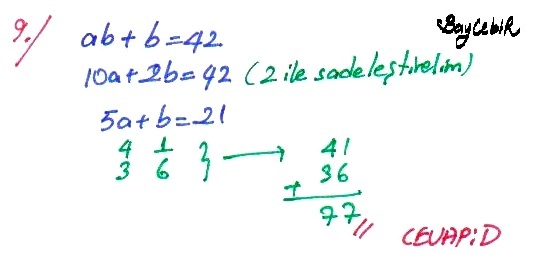 BaycebiR
9./ ab + b = 42
10a + 2b = 42 (2 ile sadeleştirelim)
5a + b = 21
4 1 } → 41
3 6 + 36
77 //
CEVAP: D